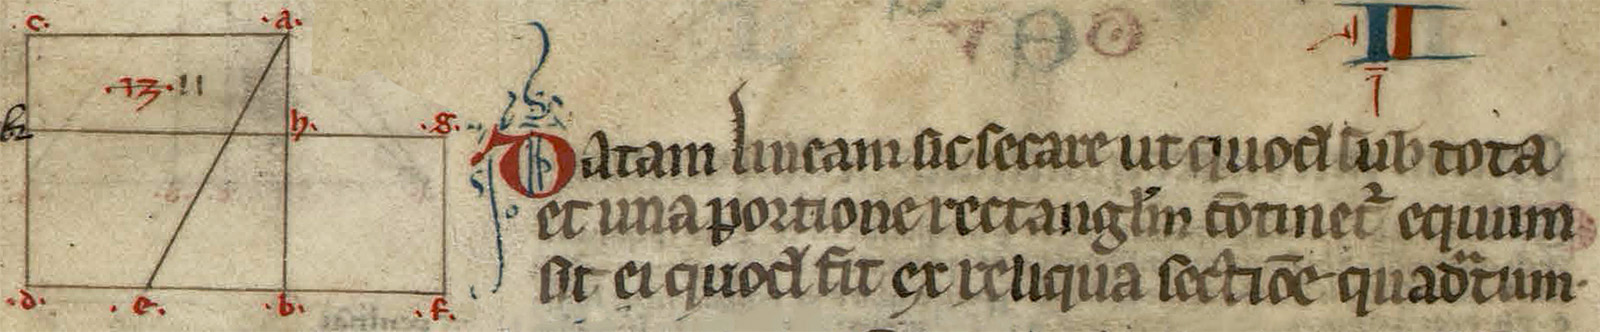 .c. .a.
.13.11
h. .g.
.d. .e. .b. .f.
Datam lineam sic secare ut quod sub tota
et una portione rectangl̄m c̄otinet᷑ equum
sit ei quod fit ex reliqua sectiōe quadᷓtum.